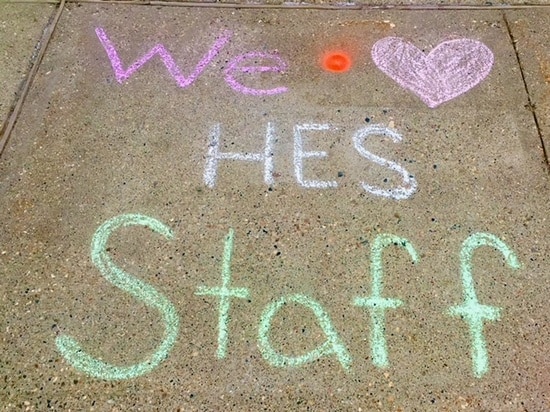 We ❤
HES
Staff